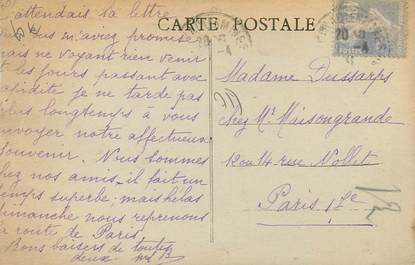 CARTE POSTALE
attendais la lettre
m'aviez promise
mais ne voyant rien venir
et les jours passant avec
rapidité je ne tarde pas
plus longtemps à vous
envoyer notre affectueux
souvenir. Nous sommes
chez nos amis, il fait un
temps superbe; mais hélas
dimanche nous reprenons
la route de Paris.
Bons baisers de toutes
deux.
Madame Dussarps
chez Mr Maisongrande
12 ou 14 rue Nollet
Paris